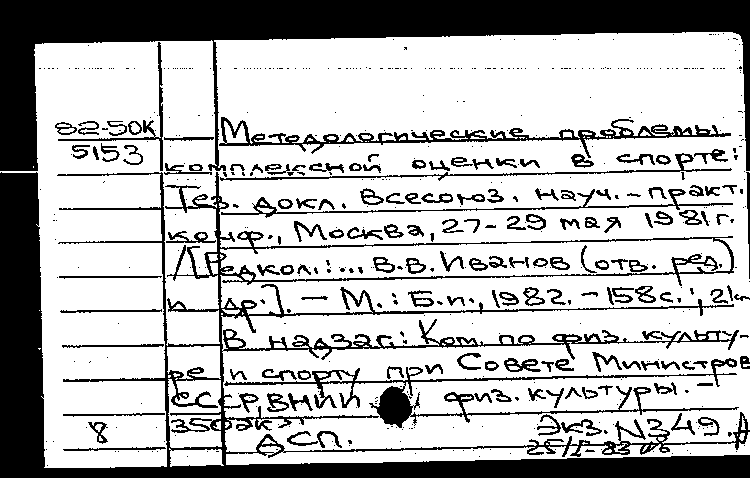 82-50К Методологические проблемы
5153 комплексной оценки в спорте:
Тез. докл. Всесоюз. науч.-практ.
конф., Москва, 27-29 мая 1981 г.
/[Редкол.:... В.В. Иванов (отв. ред.)
и др.]. — М.: Б.и., 1982. - 158 с.; 21 см
В надзаг.: Ком. по физ. культу-
ре и спорту при Совете Министров
СССР, ВНИИ физ. культуры. —
8 350 экз. Экз. N349.
ДСП. 25/I-83